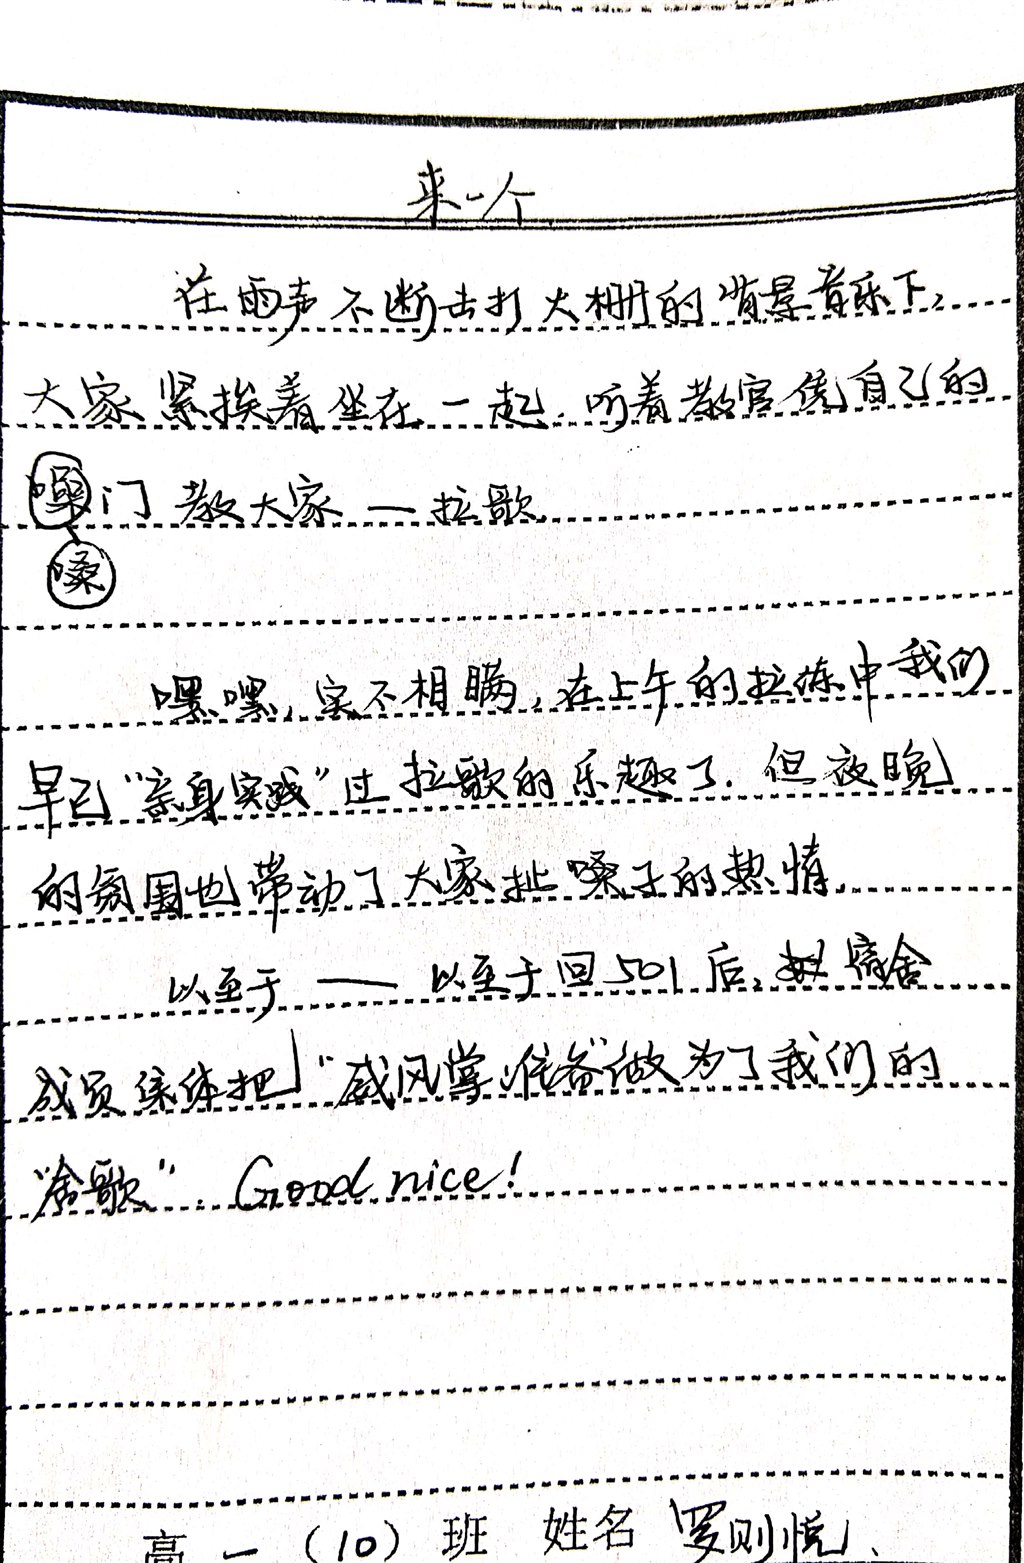 来一个
在雨声不断击打大棚的背景音乐下，
大家紧挨着坐在一起.听着教官凭自己的
门教大家——拉歌.
嗓
嘿嘿，实不相瞒，在上午的拉练中我们
早已“亲身实践”过拉歌的乐趣了.但夜晚
的氛围也带动了大家扯嗓子的热情.
以至于——以至于回501后，宿舍
成员集体把“威风掌”做为了我们的
“舍歌”.Good nice!
高一（10）班 姓名 罗则悦